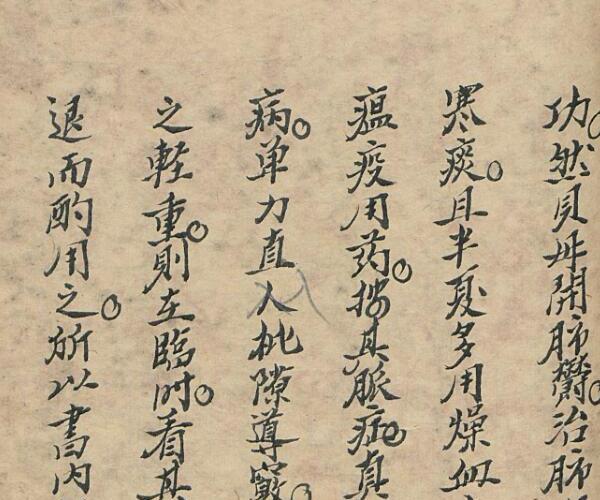 功。然貝母開肺鬱。治肺
寒痰。且半夏多用燥血
瘟疫用药。按其脈症。真
病。单刀直入批隙導窾。
之軽重。則在臨时。看其
退而酌用之。所以書内